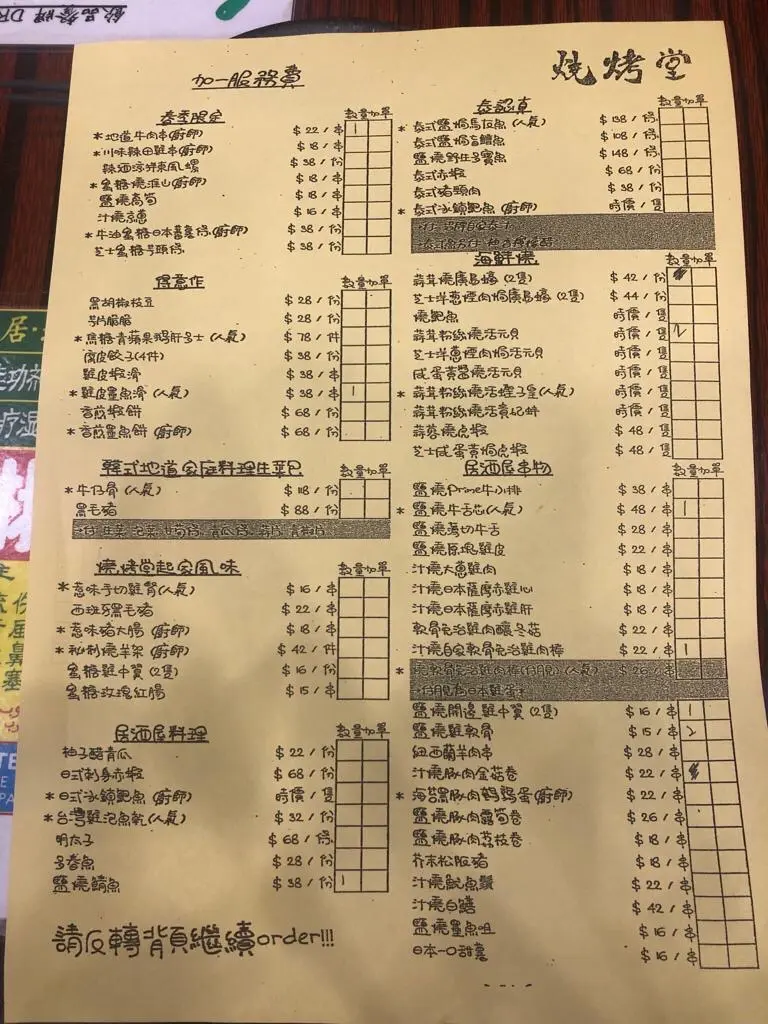 飲品餐牌 DR
加一服務費
燒烤堂
春季限定 數量加單
*地道牛肉串(廚師) $22/串 1
*川味辣田雞串(廚師) $18/串
辣酒涼拌東風螺 $38/份
*蜜糖燒淮山(廚師) $18/串
鹽燒萵筍 $18/串
汁燒京蔥 $16/串
*牛油蜜糖日本蕃薯(廚師) $38/份
芝士蜜糖芋頭 $38/份
得意作 數量加單
黑胡椒枝豆 $28/份
$28/份
*焦糖青蘋果鵝肝多士(人氣) $78/件
窩皮餃子(4件) $38/份
雞皮蝦滑 $38/串
*雞皮墨魚滑(人氣) $38/串 1
香煎蝦餅 $68/份
*香煎墨魚餅(廚師) $68/份
韓式地道家庭料理生菜包 數量加單
*牛仔骨(人氣) $118/份
黑毛豬 $88/份
燒烤堂起家風味 數量加單
*惹味手切雞腎(人氣) $16/串
西班牙黑毛豬 $22/串
*惹味豬大腸(廚師) $18/串
*秘制燒羊架(廚師) $42/件
蜜糖雞中翼(2隻) $16/份
蜜糖玫瑰紅腸 $15/串
居酒屋料理 數量加單
柚子醋青瓜 $22/份
日式刺身赤蝦 $68/份
*日式冰鎮鮑魚(廚師) 時價/隻
*台灣雞泡魚乾(人氣) $32/份
明太子 $68/份
多春魚 $28/份
鹽燒鯖魚 $38/份 1
請反轉背頁繼續order!!!
泰認真 數量加單
*泰式鹽焗馬友魚(人氣) $138/份
泰式鹽焗盲鰽魚 $108/份
鹽燒野生子寶魚 $148/份
泰式赤蝦 $68/份
泰式豬頸肉 $38/份
*泰式冰鎮鮑魚(廚師) 時價/隻
海鮮燒 數量加單
蒜茸燒廣島蠔(2隻) $42/份
芝士洋蔥煙肉焗廣島蠔(2隻) $44/份
燒鮑魚 時價/隻
蒜茸粉絲燒活元貝 時價/隻 2
芝士洋蔥煙肉焗活元貝 時價/隻
咸蛋黃醬燒活元貝 時價/隻
*蒜茸粉絲燒活蟶子皇(人氣) 時價/隻
蒜茸粉絲燒活貴妃蚌 時價/隻
蒜蓉燒虎蝦 $48/隻
芝士咸蛋黃焗虎蝦 $48/隻
居酒屋串物 數量加單
鹽燒Prime牛小排 $38/串
*鹽燒牛舌芯(人氣) $48/串 1
鹽燒薄切牛舌 $28/串
鹽燒原塊雞皮 $22/串
汁燒大蔥雞肉 $18/串
汁燒日本薩摩赤雞心 $18/串
汁燒日本薩摩赤雞肝 $18/串
軟骨免治雞肉釀冬菇 $22/串
汁燒自家軟骨免治雞肉棒 $22/串 1
*燒軟骨免治雞肉棒(仔脫)(人氣) $26/串
鹽燒開邊雞中翼(2隻) $16/串 1
鹽燒雞軟骨 $15/串 2
紐西蘭羊肉串 $28/串
汁燒豚肉金菇卷 $22/串
*海苔黑豚肉鵪鶉蛋(廚師) $22/串
鹽燒豚肉露筍卷 $26/串
鹽燒豚肉荔枝卷 $18/串
芥末松阪豬 $18/串
汁燒魷魚鬚 $22/串
汁燒白鱔 $42/串
鹽燒墨魚咀 $16/串
日本一口甜薯 $16/串